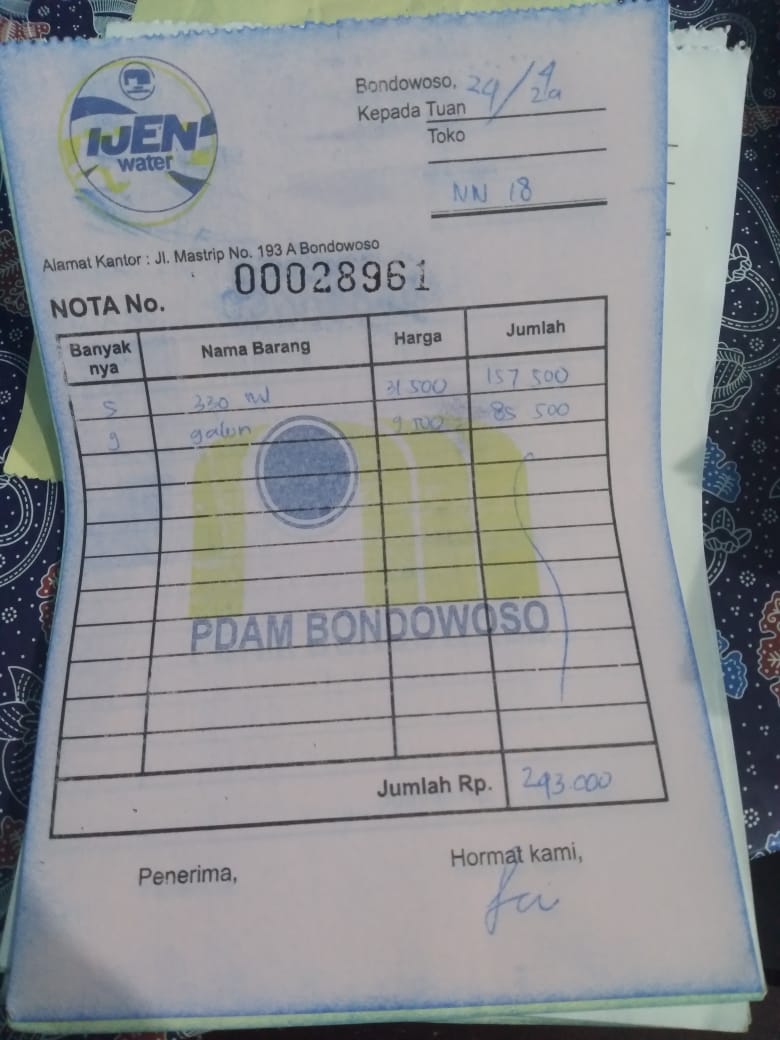 IJEN
water
Bondowoso,
Kepada Tuan
Toko
NN 18
Alamat Kantor : Jl. Mastrip No. 193 A Bondowoso
NOTA No. 00028961
Banyak nya Nama Barang Harga Jumlah
5 330 ml 31 500 157 500
9 galon 9 500 85 500
PDAM BONDOWOSO
Jumlah Rp. 243.000
Penerima, Hormat kami,